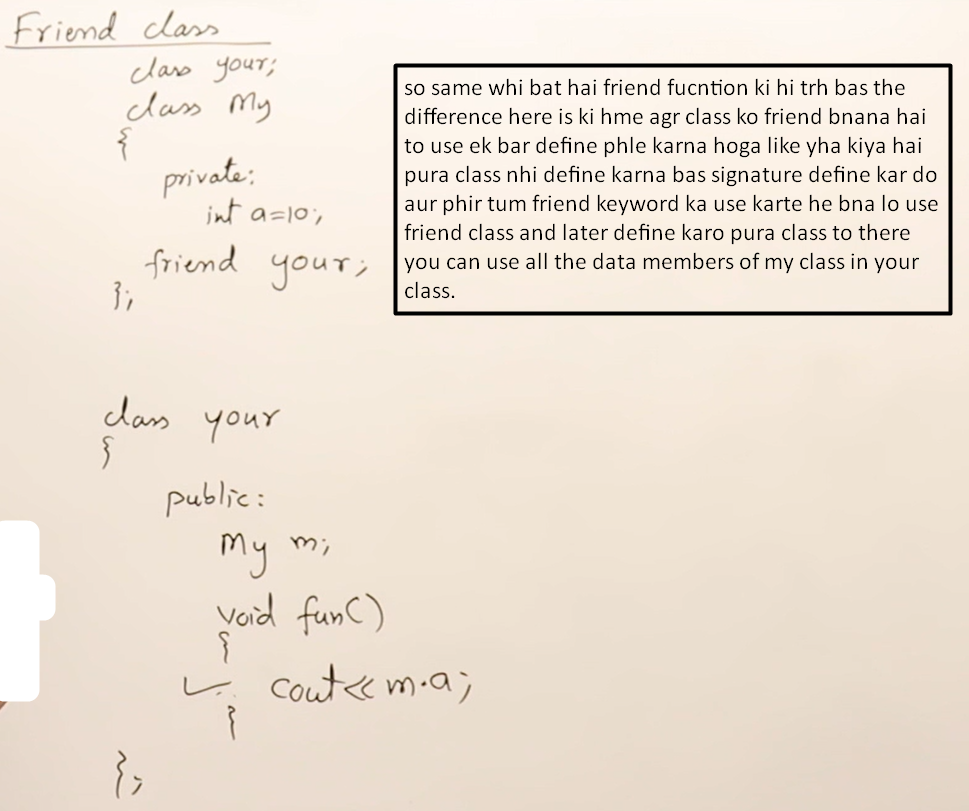 Friend class
class your;
class My
{
private:
int a=10;
friend your;
};
so same whi bat hai friend fucntion ki hi trh bas the
difference here is ki hme agr class ko friend bnana hai
to use ek bar define phle karna hoga like yha kiya hai
pura class nhi define karna bas signature define kar do
aur phir tum friend keyword ka use karte he bna lo use
friend class and later define karo pura class to there
you can use all the data members of my class in your
class.
class your
{
public:
My m;
void fun()
{
cout<<m.a;
}
};